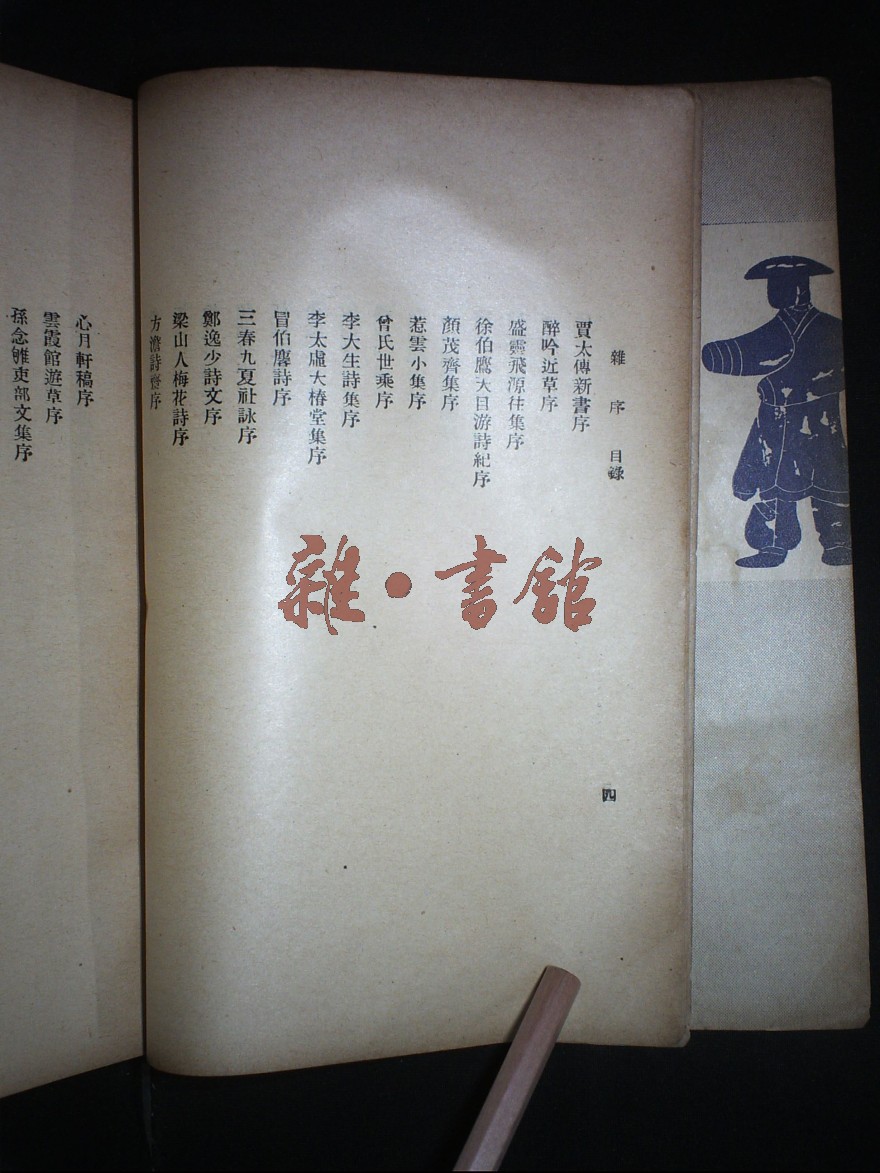 雜序 目錄
賈太傅新書序
醉吟近草序
盛靈飛源往集序
徐伯鷹天目游詩紀序
顏茂齊集序
惹雲小集序
曾氏世乘序
李大生詩集序
李太虛大椿堂集序
冒伯麐詩序
三春九夏社詠序
鄭逸少詩文序
梁山人梅花詩序
方澹詩齋序
四
心月軒稿序
雲霞館遊草序
孫念雛吏部文集序
雜·書館